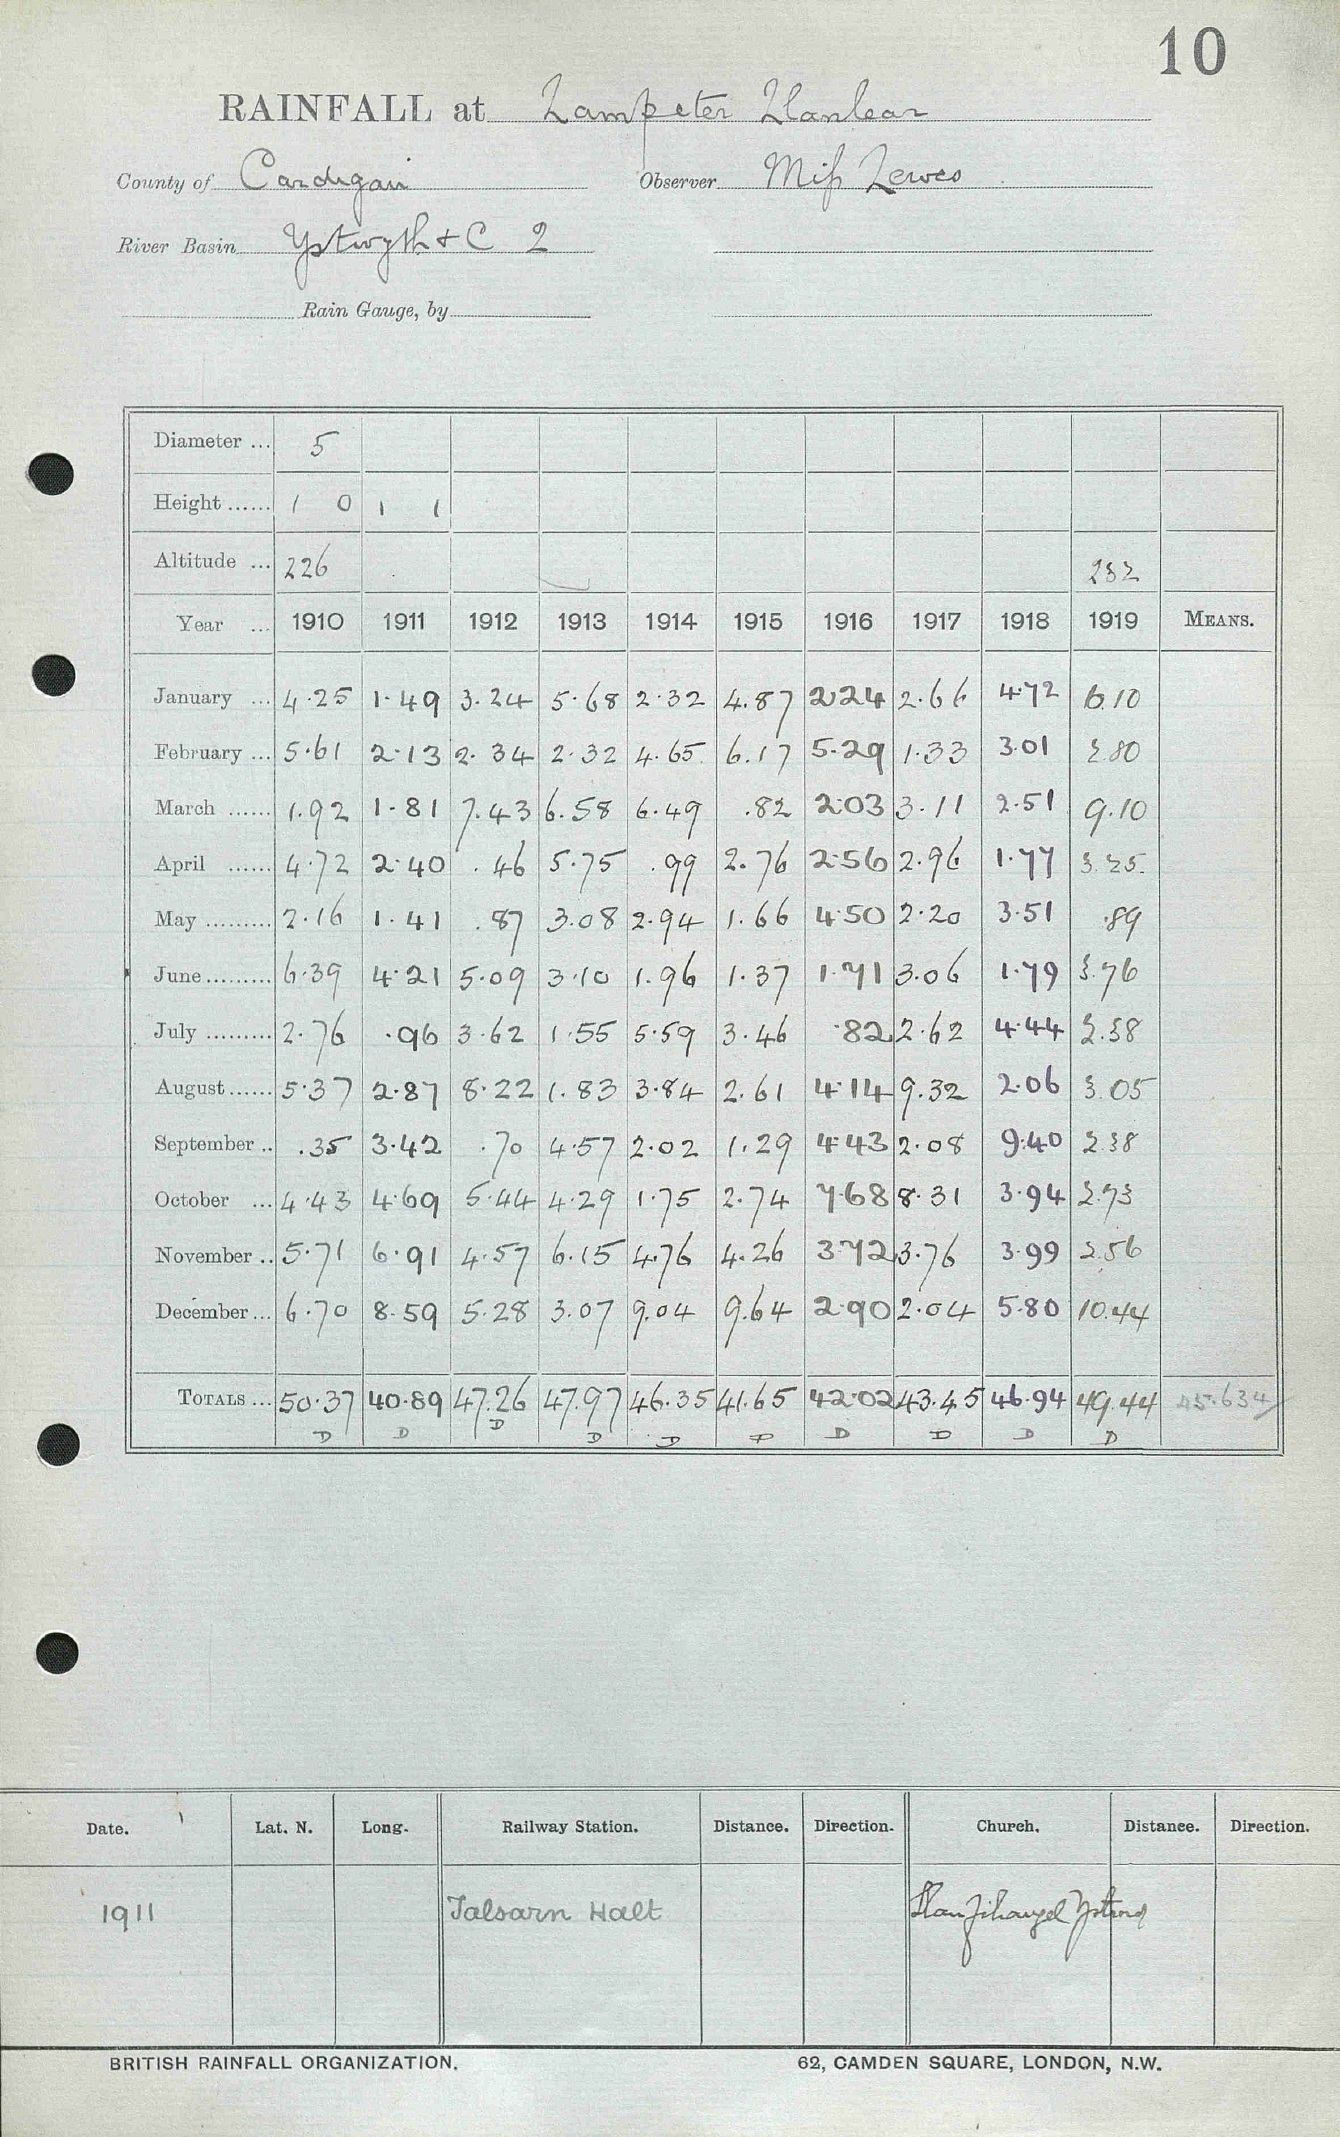 10
RAINFALL at Lampeter Llanlear
County of Cardigan Observer Miss Lewes
River Basin Ystwyth + C 2
Rain Gauge, by
Diameter ... 5
Height ...... 1 0 1 1
Altitude ... 226 232
Year ... 1910 1911 1912 1913 1914 1915 1916 1917 1918 1919 MEANS.
January ... 4.25 1.49 3.24 5.68 2.32 4.87 2.24 2.66 4.72 6.10
February ... 5.61 2.13 2.34 2.32 4.65 6.17 5.29 1.33 3.01 2.80
March ...... 1.92 1.81 7.43 6.58 6.49 .82 2.03 3.11 2.51 9.10
April ...... 4.72 2.40 .46 5.75 .99 2.76 2.56 2.96 1.77 3.25
May ......... 2.16 1.41 .87 3.08 2.94 1.66 4.50 2.20 3.51 .89
June ......... 6.39 4.21 5.09 3.10 1.96 1.37 1.71 3.06 1.79 3.76
July ......... 2.76 .96 3.62 1.55 5.59 3.46 .82 2.62 4.44 2.38
August ...... 5.37 2.87 8.22 1.83 3.84 2.61 4.14 9.32 2.06 3.05
September .. .35 3.42 .70 4.57 2.02 1.29 4.43 2.08 9.40 2.38
October ... 4.43 4.69 5.44 4.29 1.75 2.74 7.68 8.31 3.94 2.73
November .. 5.71 6.91 4.57 6.15 4.76 4.26 3.72 3.76 3.99 2.56
December ... 6.70 8.59 5.28 3.07 9.04 9.64 2.90 2.04 5.80 10.44
TOTALS ... 50.37 40.89 47.26 47.97 46.35 41.65 42.02 43.45 46.94 49.44 45.634
D D D D D D D D D D
Date. Lat. N. Long. Railway Station. Distance. Direction. Church. Distance. Direction.
1911 Talsarn Halt Llanfihangel Ystrad
BRITISH RAINFALL ORGANIZATION. 62, CAMDEN SQUARE, LONDON, N.W.